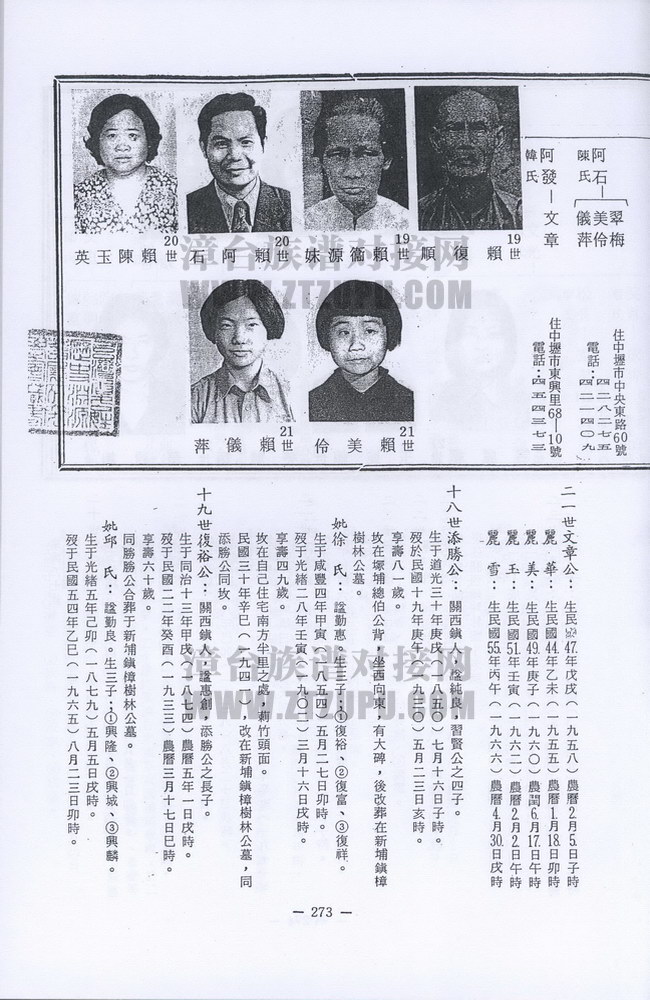 阿石 翠梅
陳氏 美伶
儀萍
阿發—文章
韓氏
住中壢市中央東路60號
電話：四二八二七五
四二一四〇九
住中壢市東興里68—10號
電話：四五四三七三
19世 賴復順
19世 賴衞源妹
20世 賴阿石
20世 賴陳玉英
21世 賴美伶
21世 賴儀萍
漳台族谱对接网
WWW.ZTZUPU.COM
二一世文章公：生民國47年戊戌（一九五八）農曆2月5日子時
麗華：生民國44年乙未（一九五五）農曆1月18日卯時
麗美：生民國49年庚子（一九六〇）農閏6月17日午時
麗玉：生民國51年壬寅（一九六二）農曆2月2日午時
麗雪：生民國55年丙午（一九六六）農曆4月30日戌時
十八世添勝公：關西鎮人，諡純良，習賢公之四子。
生于道光三十年庚戌（一八五〇）七月十六日子時。
歿於民國十九年庚午（一九三〇）五月二三日亥時。
享壽八一歲。
坟在塚埔總伯公背，坐西向東，有大碑，後改葬在新埔鎮樟
樹林公墓。
妣徐氏：諡勤惠。生三子；①復裕、②復富、③復祥。
生于咸豐四年甲寅（一八五四）五月二七日卯時。
歿于光緒二八年壬寅（一九〇二）三月十六日戌時。
享壽四九歲。
坟在自己住宅南方半里之處，莿竹頭面。
民國三十年辛巳（一九四一），改在新埔鎮樟樹林公墓，同
添勝公同坟。
十九世復裕公：關西鎮人，諡惠創，添勝公之長子。
生于同治十三年甲戌（一八七四）農曆五年一日戌時。
歿于民國二二年癸酉（一九三三）農曆三月十七日巳時。
享壽六十歲。
同勝勝公合葬于新埔鎮樟樹林公墓。
妣邱氏：諡勤良。生三子；①興隆、②興城、③興麟。
生于光緒五年己卯（一八七九）五月五日戌時。
歿于民國五四年乙巳（一九六五）八月二三日卯時。
漳台族谱对接网
WWW.ZTZUPU.COM
— 273 —